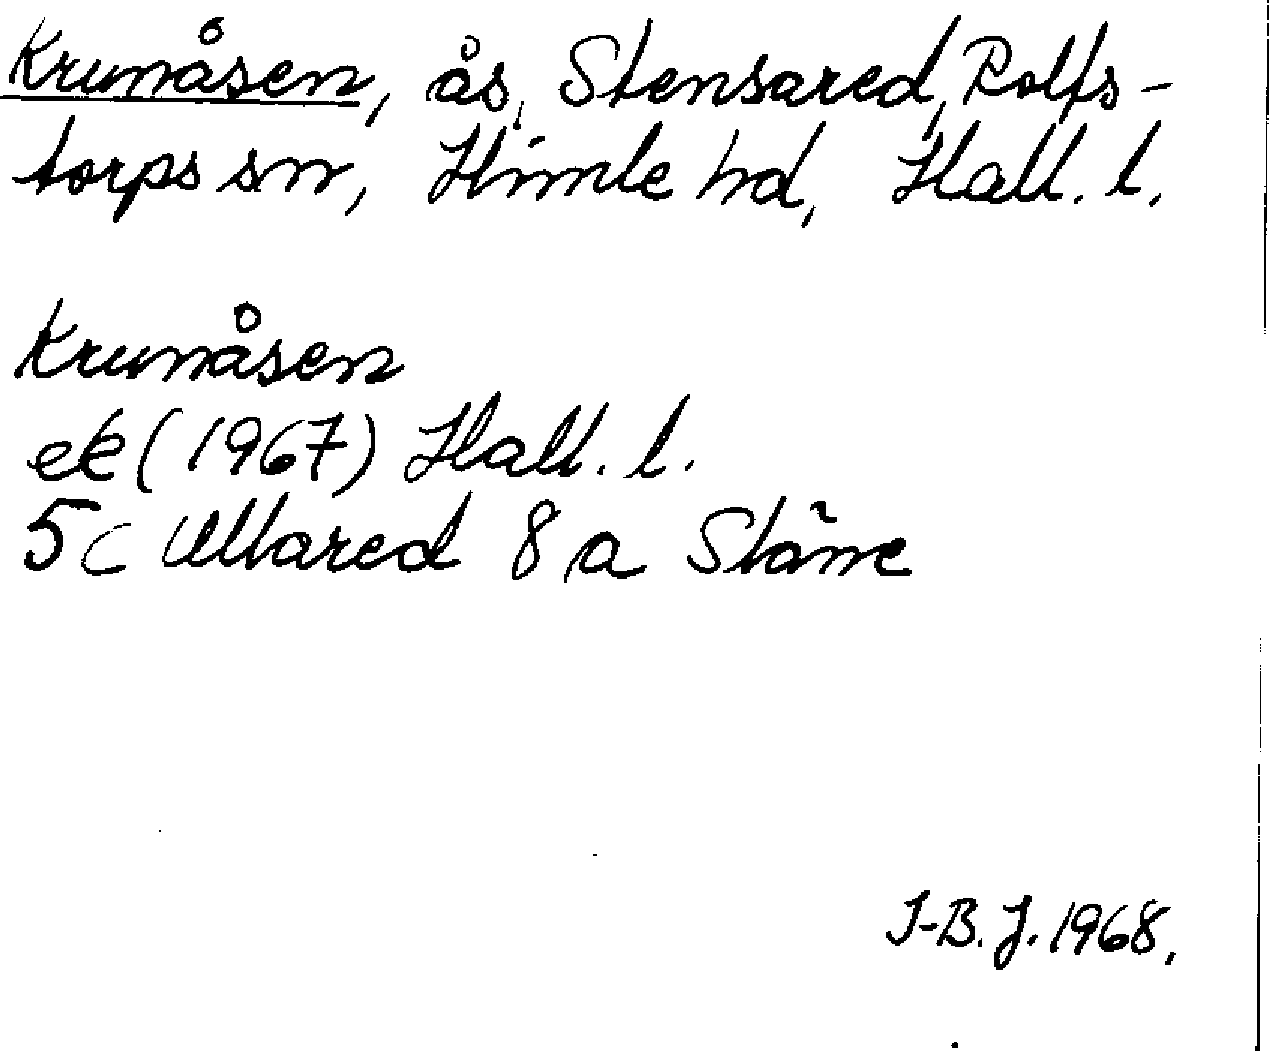 Krumåsen, ås, Stensared, Rolfs-
torps sn, Himle hd, Hall. l.
Krumåsen
ek (1967) Hall. l.
5 C Ullared 8 a Stäme
J-B. J. 1968.